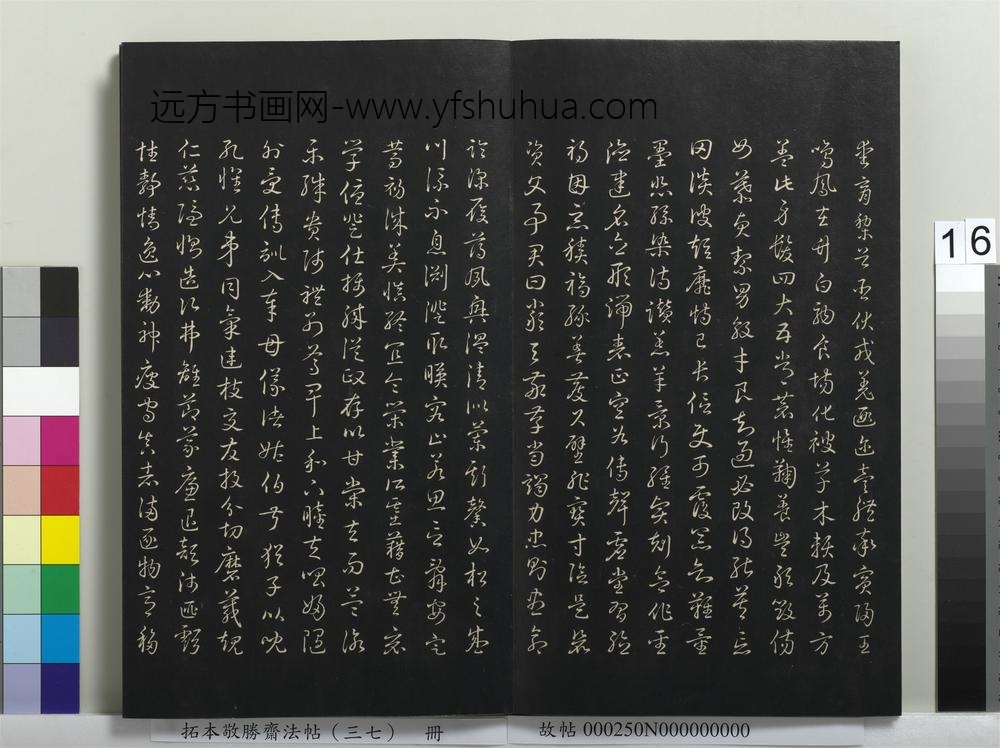 远方书画网-www.yfshuhua.com
愛育黎首臣伏戎羌遐邇壹體率賓歸王
鳴鳳在樹白駒食場化被草木賴及萬方
蓋此身髮四大五常恭惟鞠養豈敢毀傷
女慕貞絜男效才良知過必改得能莫忘
罔談彼短靡恃己長信使可覆器欲難量
墨悲絲染詩讚羔羊景行維賢剋念作聖
德建名立形端表正空谷傳聲虛堂習聽
禍因惡積福緣善慶尺璧非寶寸陰是競
資父事君曰嚴與敬孝當竭力忠則盡命
臨深履薄夙興溫清似蘭斯馨如松之盛
川流不息淵澄取映容止若思言辭安定
篤初誠美慎終宜令榮業所基藉甚無竟
學優登仕攝職從政存以甘棠去而益詠
樂殊貴賤禮別尊卑上和下睦夫唱婦隨
外受傅訓入奉母儀諸姑伯叔猶子比兒
孔懷兄弟同氣連枝交友投分切磨箴規
仁慈隱惻造次弗離節義廉退顛沛匪虧
性靜情逸心動神疲守真志滿逐物意移
16
拓本敬勝齋法帖（三七） 冊
故帖 000250N000000000